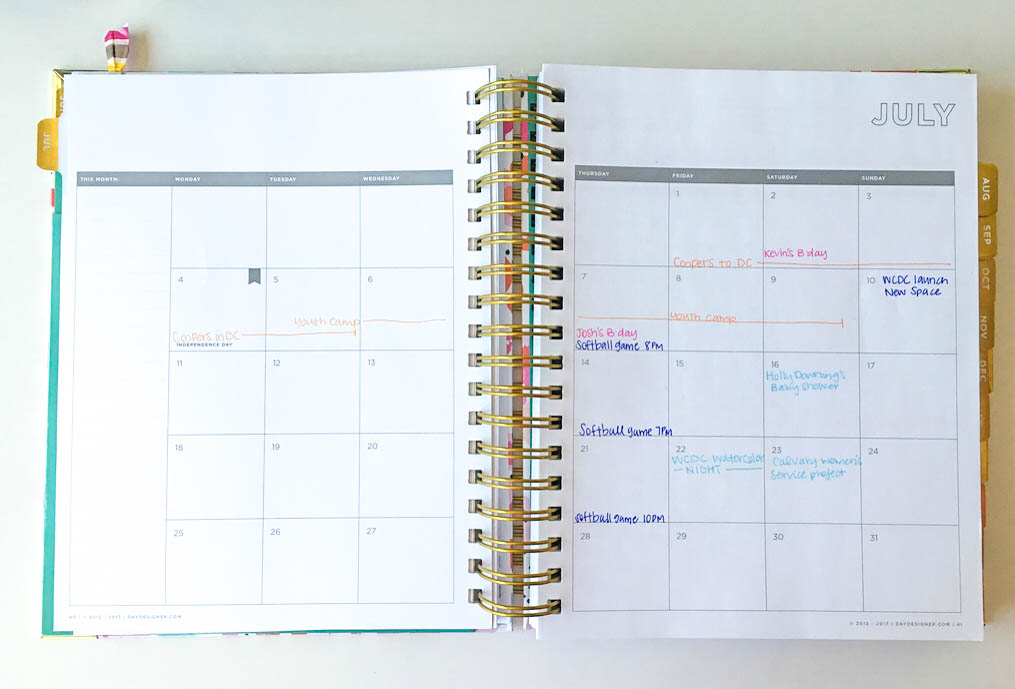 JULY
JUL
THIS MONTH:
MONDAY
TUESDAY
WEDNESDAY
THURSDAY
FRIDAY
SATURDAY
SUNDAY
1
2
3
Coopers to DC
Kevin's B day
4
5
6
Coopers in DC
INDEPENDENCE DAY
Youth Camp
7
8
9
10 WCDC launch
New Space
Youth Camp
Josh's B day
Softball game 8PM
11
12
13
14
15
16
17
Holly Downing's
Baby shower
Softball game 7PM
18
19
20
21
22
23
24
WCDC Watercolor
NIGHT
Calvary Women's
Service project
Softball game 10PM
25
26
27
28
29
30
31
AUG
SEP
OCT
NOV
DEC
2012 - 2017 | DAYDESIGNER.COM
© 2012 - 2017 | DAYDESIGNER.COM | 41